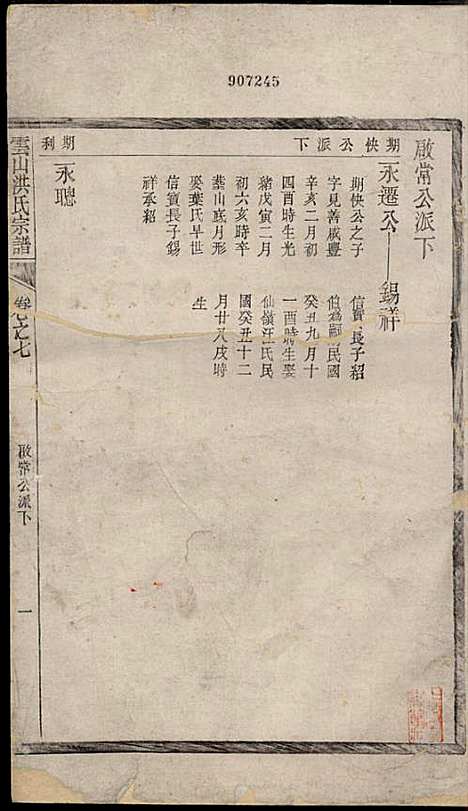 907245
啟常公派下
期快公派下
永遷公——錫祥
期快公之子
字見善咸豐
辛亥二月初
四酉時生光
緒戊寅二月
初六亥時卒
塟山底月形
娶葉氏早世
信實長子錫
祥承紹
信實長子紹
伯為嗣民國
癸丑九月十
一酉時生娶
仙嶺汪氏民
國癸丑十二
月廿八戌時
生
期利
永聰
雲山洪氏宗譜
卷之七
啟常公派下
一